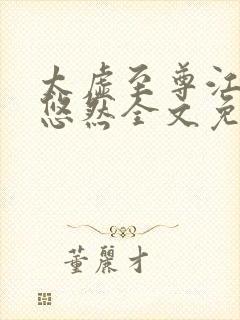 太虚至尊江
悠然全文免
董麗才